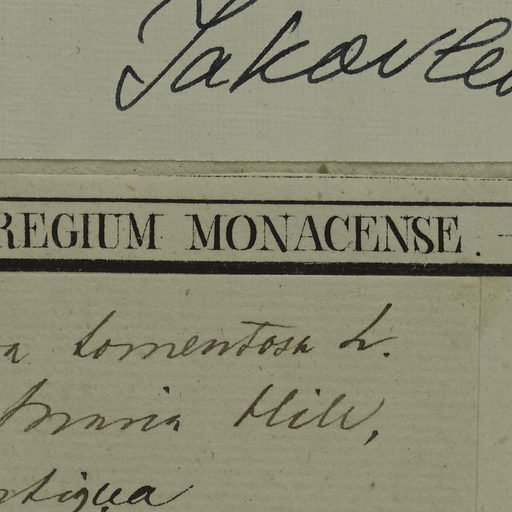 Jakovle
REGIUM MONACENSE.
a tomentosa L.
maria Hill,
tigua